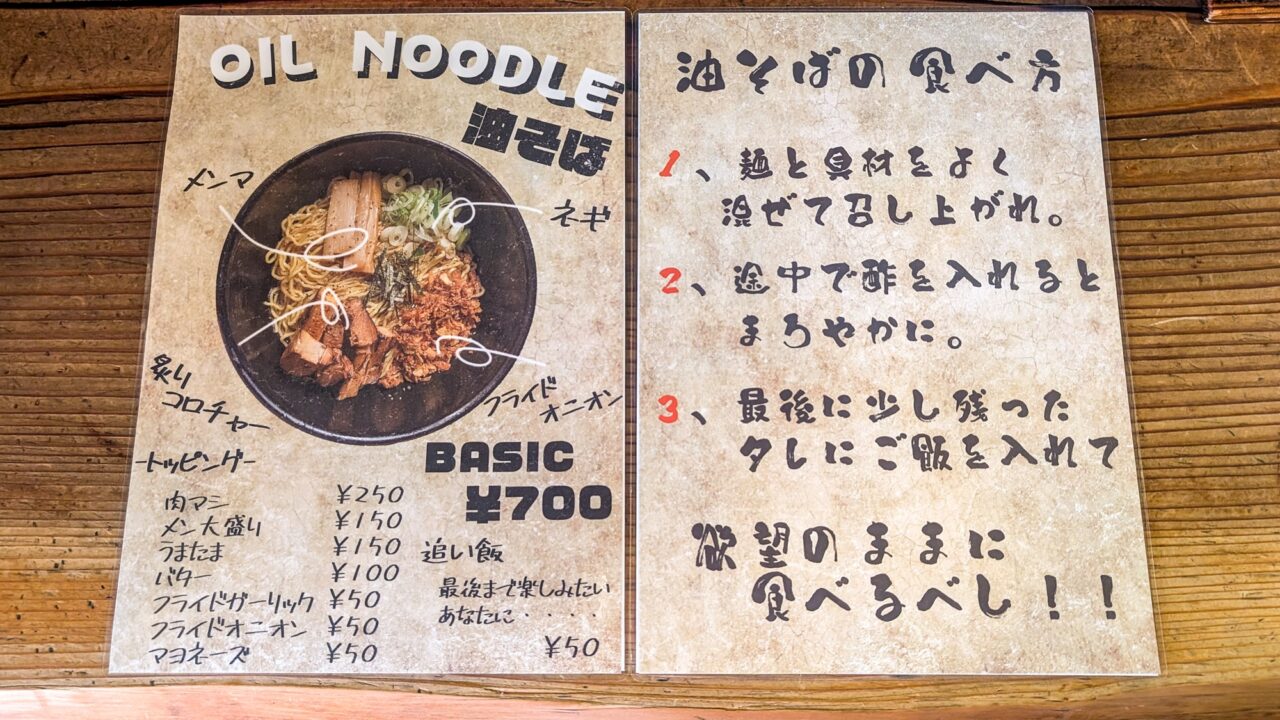 OIL NOODLE
油そば
メンマ
ネギ
炙り
コロチャー
フライド
オニオン
BASIC
¥700
トッピング
肉マシ ¥250
メン大盛り ¥150
うまたま ¥150
バター ¥100
フライドガーリック ¥50
フライドオニオン ¥50
マヨネーズ ¥50
追い飯
最後まで楽しみたい
あなたに・・・・・
¥50
油そばの食べ方
1、麺と具材をよく
混ぜて召し上がれ。
2、途中で酢を入れると
まろやかに。
3、最後に少し残った
タレにご飯を入れて
欲望のままに
食べるべし！！